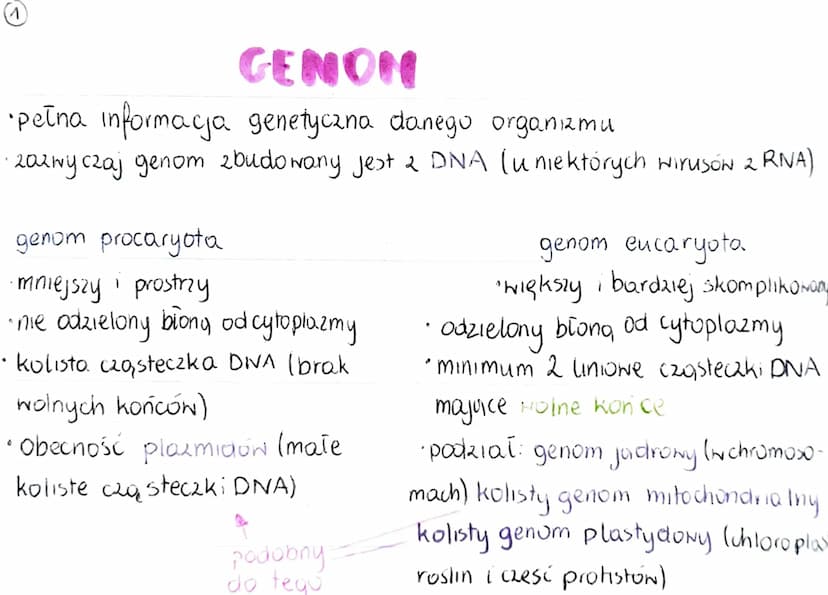 1
GENOM
·pełna informacja genetyczna danego organizmu
·zazwyczaj genom zbudowany jest z DNA (u niektórych wirusów z RNA)
genom procaryota
·mniejszy i prostrzy
·nie odzielony błoną od cytoplazmy
·kolista cząsteczka DNA (brak
wolnych końców)
·obecność plazmidów (małe
koliste cząsteczki DNA)
podobny
do tego
genom eucaryota
·większy i bardziej skomplikowany
·odzielony błoną od cytoplazmy
·minimum 2 liniowe cząsteczki DNA
mające wolne końce
·podział: genom jądrowy (w chromoso-
mach) kolisty genom mitochondrialny
kolisty genom plastydowy (chloroplas
roślin i część protistów)